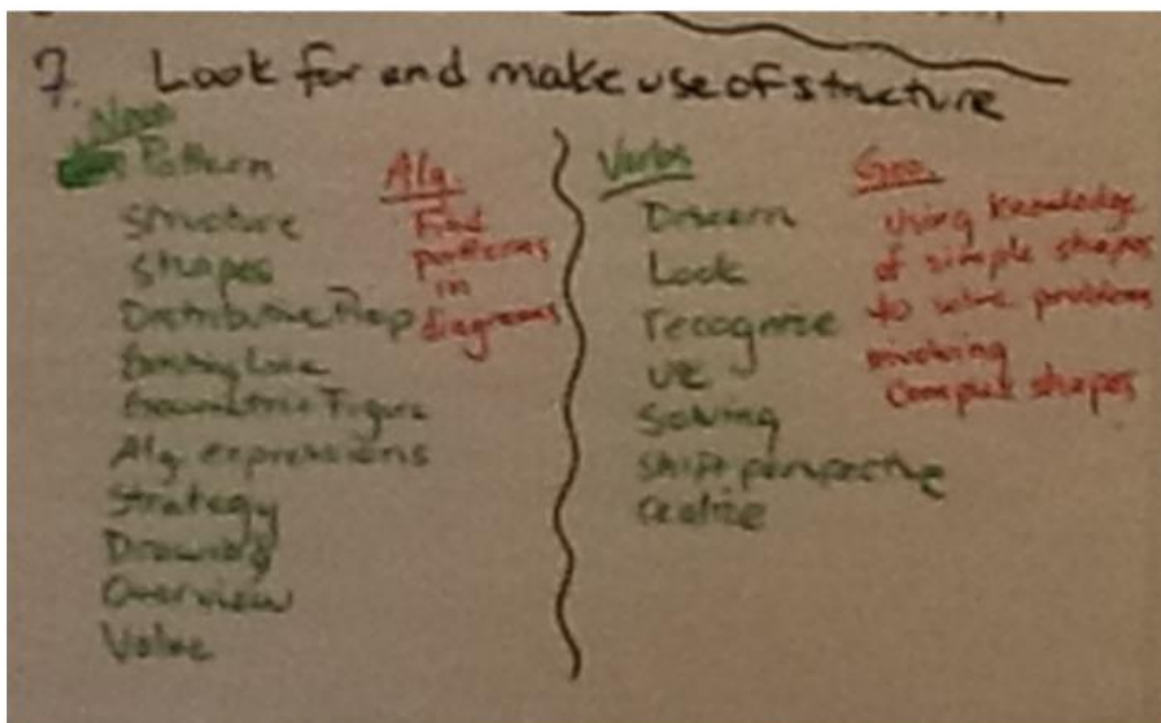 7. Look for and make use of structure
Noun
Pattern
Structure
Shapes
Distributive Prop
Geometric Figure
Alg. expressions
Strategy
Drawing
Overview
Value
Alg.
Find
patterns
in
diagrams
Verbs
Discern
Look
recognize
use
Solving
Shift perspective
realize
Geo.
Using knowledge
of simple shapes
to solve problems
involving
complex shapes